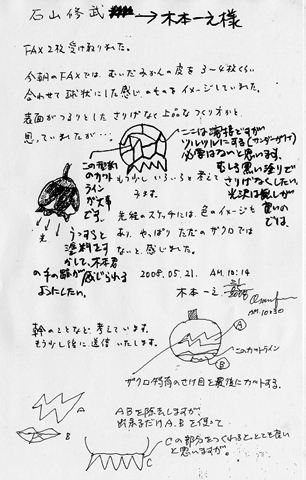 石山修武 → 木本一之様
FAX2枚受け取りました。
今朝のFAXでは、むいだみかんの皮を3〜4枚くらい
合わせて球状にした感じのものをイメージしていました。
表面がつるりとした さりげなく上品なつくり方かと、
思っていましたが…
ここは滑格ですが
ツルツルにする(サンダーがけ)
必要はないと思います。
むしろ黒い塗りで
さりげなくしたい。
光沢は隠しが
重いの
では。
この形態
のカット
ラインが
大事
です。
もう少しいろいろと考えて
みます。
先程のスケッチには、色のイメージも
あり、やっぱりただのザクロでは
ないと感じました。
うっすらと
塗料をす
かして、木本君
の手の跡が感じられる
ようにしたい。
2008.05.21. AM.10:14
木本一之
AM.10:30
幹のことなど、考えています。
もう少し後に送信いたします。
A
B
このカットライン
ザクロ特有のさけ目を最後にカットする。
A
B
C
A Bを除去しますが
出来るだけA.B.を使って
Cの部分をつくれると、とても良い
と思いますが。